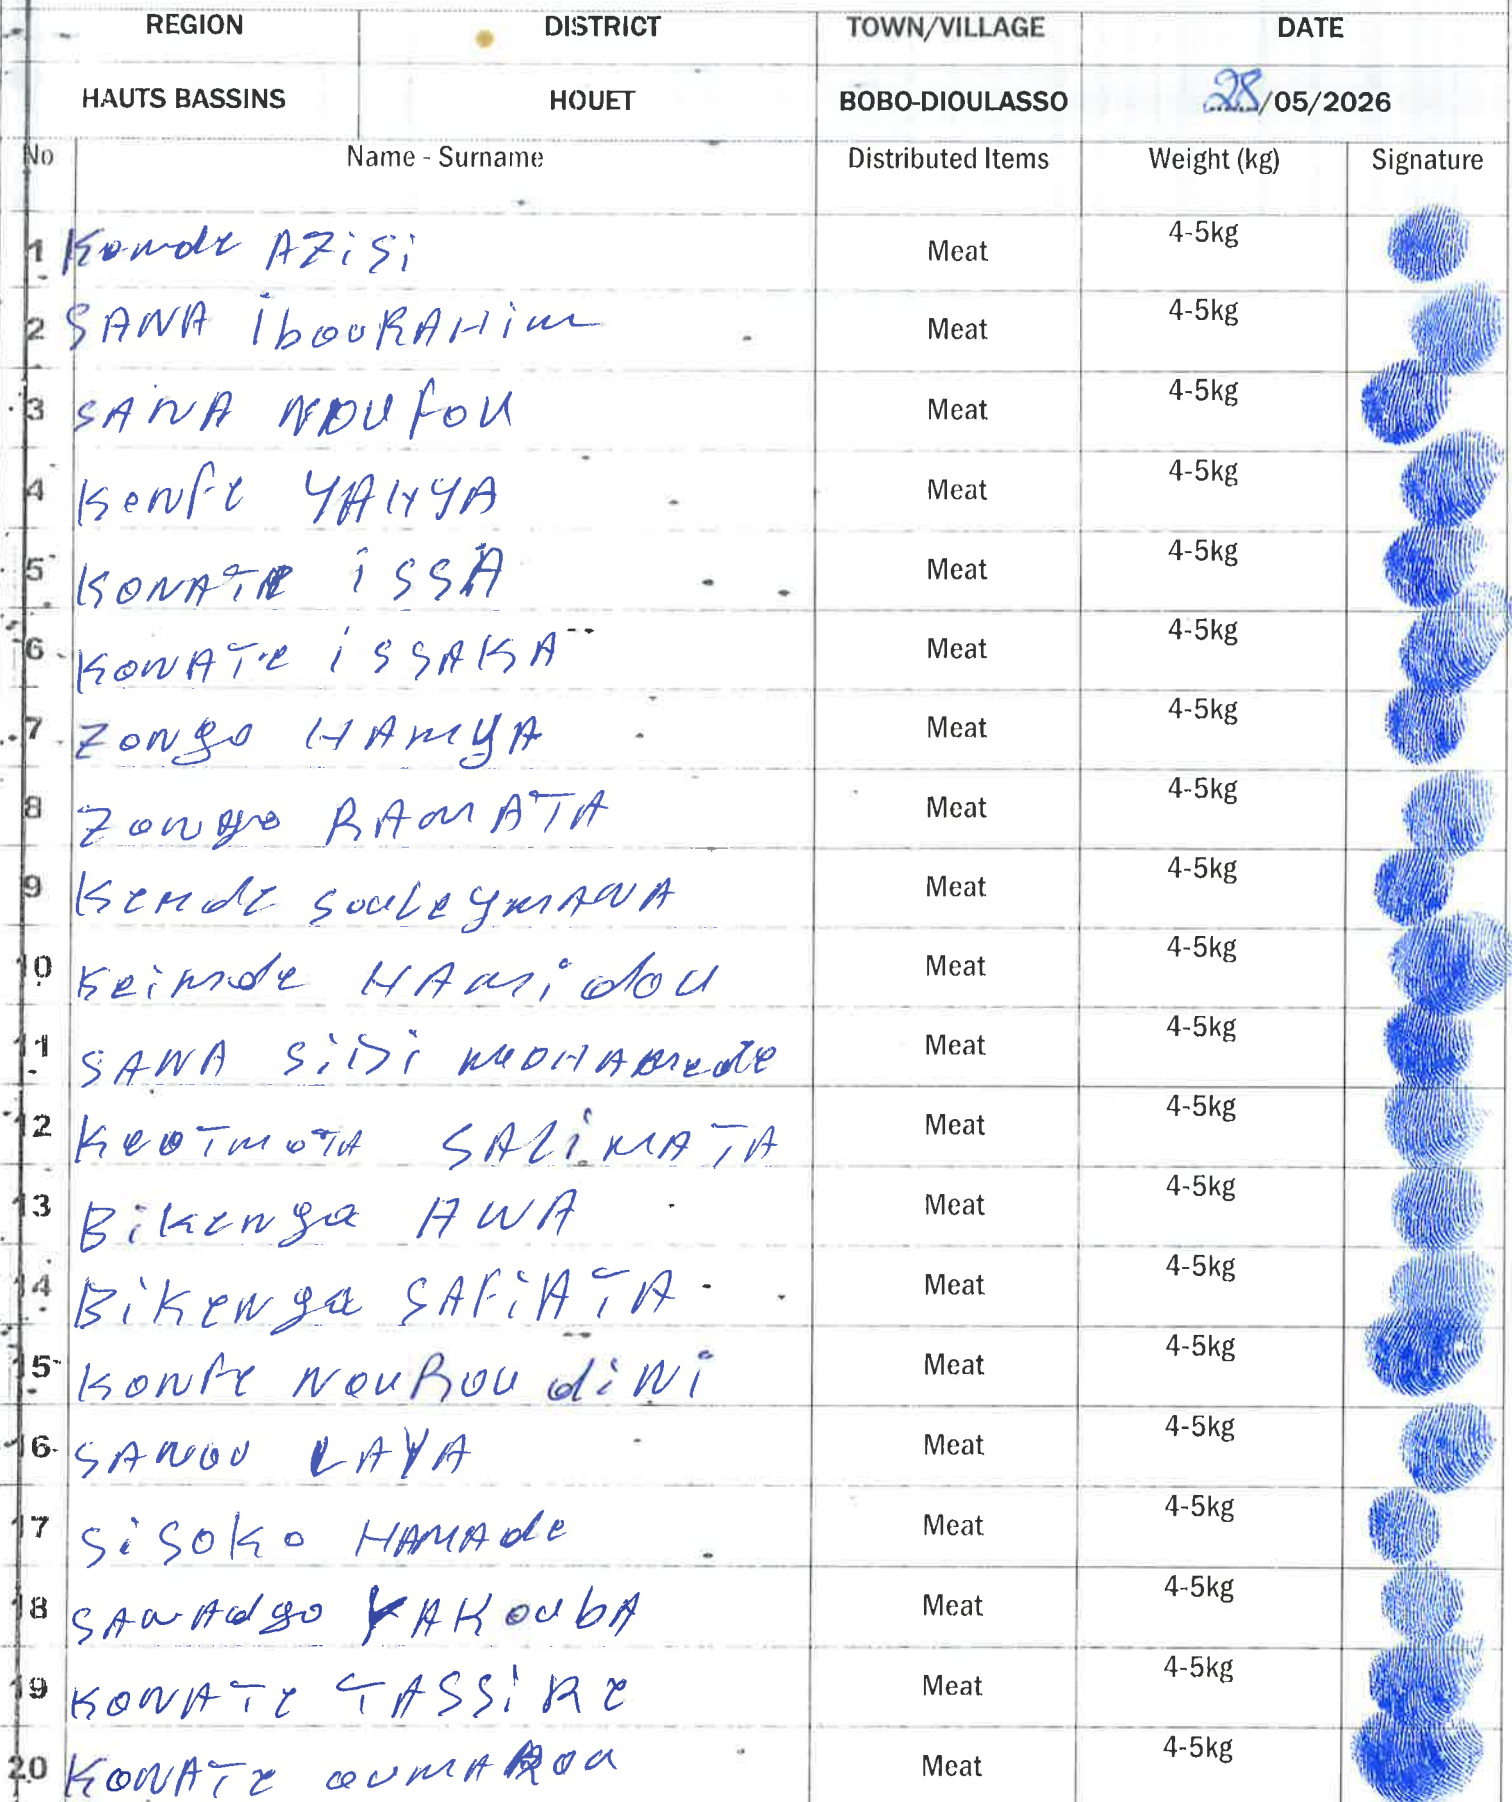 REGION DISTRICT TOWN/VILLAGE DATE
HAUTS BASSINS HOUET BOBO-DIOULASSO 28/05/2026
No Name - Surname Distributed Items Weight (kg) Signature
1 Komde AZiSi Meat 4-5kg
2 SANA IbouRAHim Meat 4-5kg
3 SANA NOUfOU Meat 4-5kg
4 Konfe YAHYA Meat 4-5kg
5 KONATE iSSA Meat 4-5kg
6 KONATE iSSAKA Meat 4-5kg
7 Zongo HAMYA Meat 4-5kg
8 Zongo RAMATA Meat 4-5kg
9 Kemde SouleymANA Meat 4-5kg
10 Keimde HAmidou Meat 4-5kg
11 SANA SiDi MOHAmede Meat 4-5kg
12 SALiMATA Meat 4-5kg
13 Bikenga AWA Meat 4-5kg
14 Bikenga SAFiATA Meat 4-5kg
15 Konfe NouRoudiNi Meat 4-5kg
16 SANOU LAYA Meat 4-5kg
17 SiSoKo HAMAde Meat 4-5kg
18 SAWAdgo YAKoubA Meat 4-5kg
19 KONATE TASSiRe Meat 4-5kg
20 KONATE oumARou Meat 4-5kg